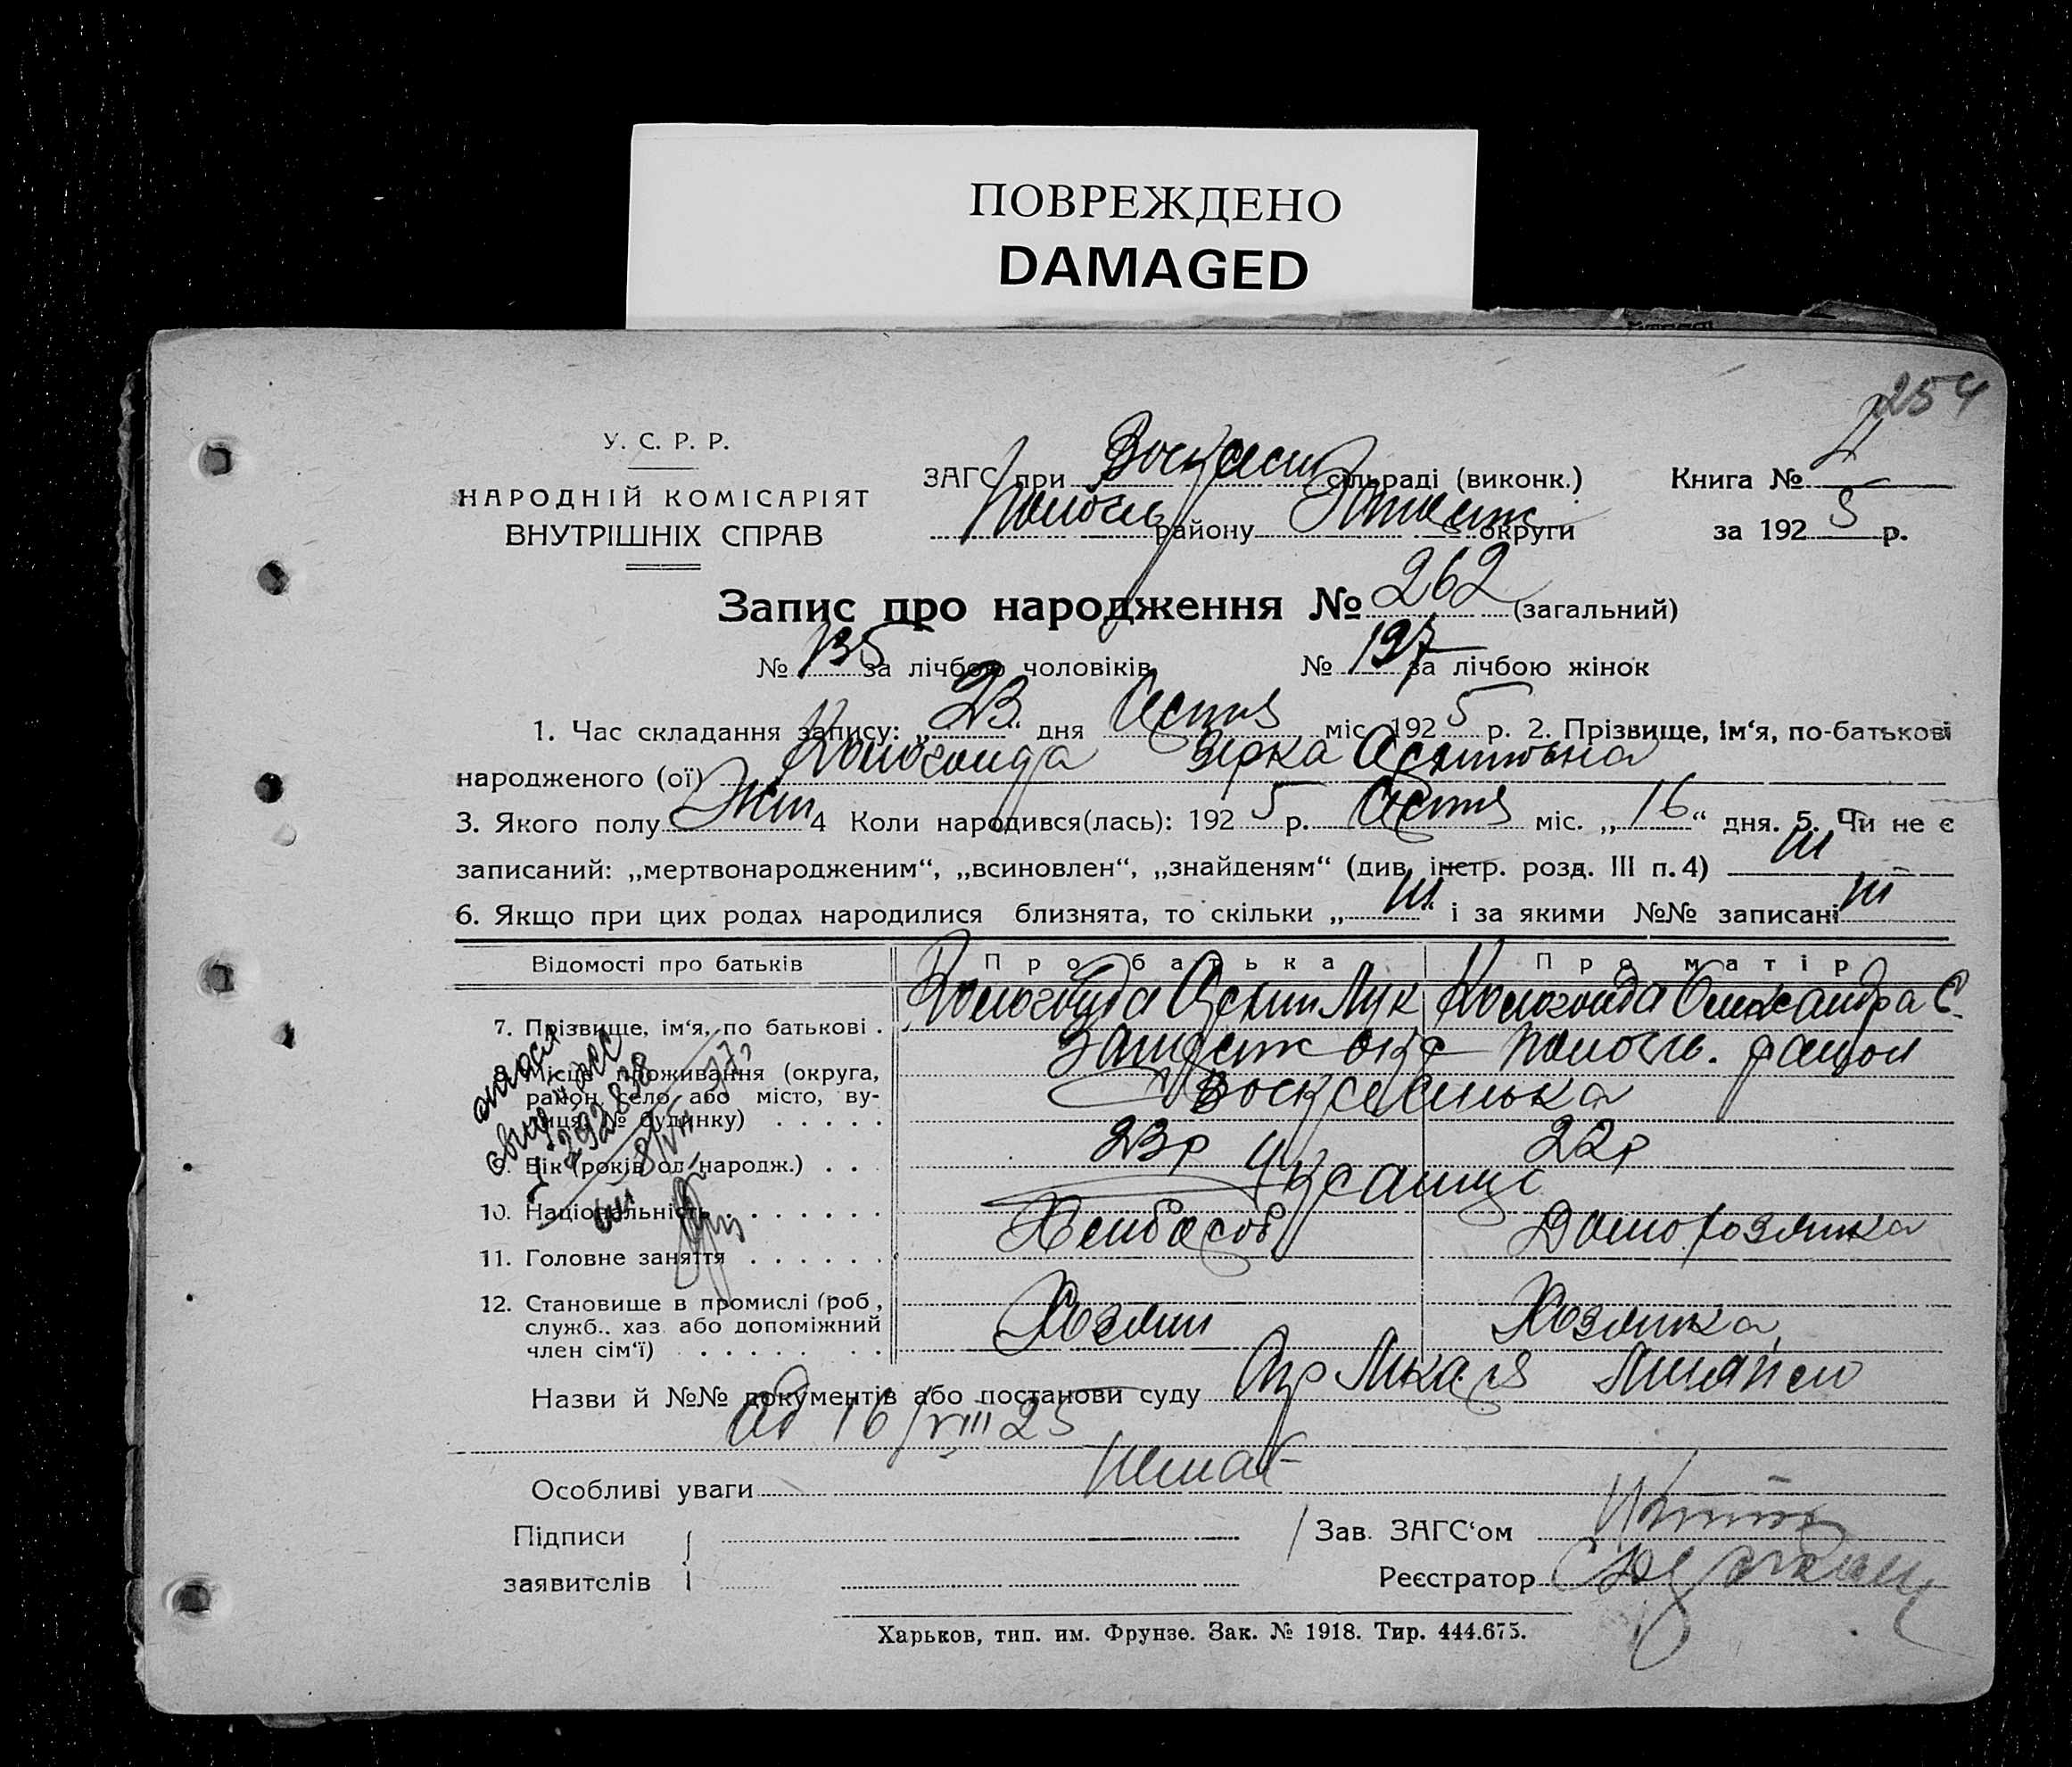 ПОВРЕЖДЕНО
DAMAGED
254
У. С. Р. Р.
НАРОДНІЙ КОМІСАРІЯТ
ВНУТРІШНІХ СПРАВ
ЗАГС при Воскресен сільраді (виконк.)
району округи
Книга №
за 1925 р.
Запис про народження № 262 (загальний)
№ 135 за лічбою чоловіків
№ 127 за лічбою жінок
1. Час складання запису: „23“ дня Серпня міс. 1925 р. 2. Прізвище, ім‘я, по-батькові
народженого (ої) Кологойда Зірка
3. Якого полу Жін 4 Коли народився(лась): 1925 р. Серпня міс. „16“ дня. 5. Чи не є
записаний: „мертвонародженим“, „всиновлен“, „знайденям“ (див. інстр. розд. III п. 4) ні
6. Якщо при цих родах народилися близнята, то скільки „ні“ і за якими №№ записані ні
Відомості про батьків
Про батька
Про матір
7. Прізвище, ім‘я, по батькові .
Кологойда Лук
Кологойда Олександра Є.
8. Місце проживання (округа,
район, село або місто, ву-
лиця, № будинку) . . . . .
Запоріж окр Пологів. район
Воскресенька
9. Вік (років од народж.) . . .
23р
22р
10. Національність . . . . . . .
Українці
11. Головне заняття . . . . . .
Хлібороб
Домохозяйка
12. Становище в промислі (роб.,
служб., хаз. або допоміжний
член сім‘ї) . . . . . . .
Хозяин
Хозяйка
Назви й №№ документів або постанови суду
од 16/VIII 25
Особливі уваги Немає
Підписи
заявителів
Зав. ЗАГС‘ом
Реєстратор
Харьков, тип. им. Фрунзе. Зак. № 1918. Тир. 444.675.